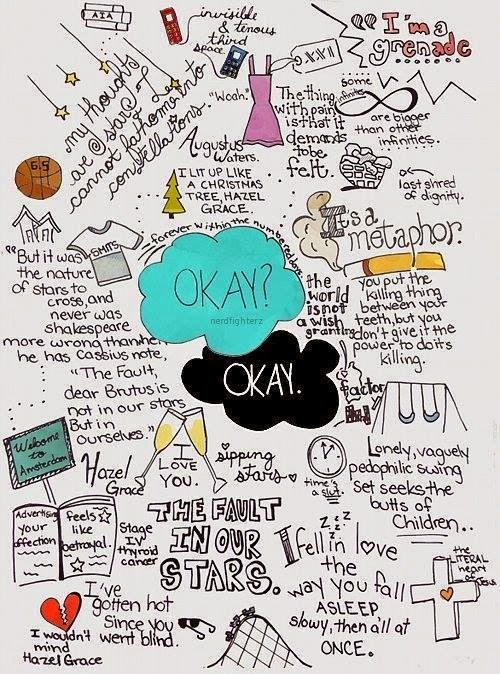 AIA
invisible
& tenous
third
space
"I'm a
grenade
my thoughts
are stars
cannot fathom into
constellations.
"Woah."
XXVII
The thing
with pain
is that it
demands
to be
felt.
some
infinities
are bigger
than other
infinities.
6.5
Augustus
Waters.
I LIT UP LIKE
A CHRISTMAS
TREE, HAZEL
GRACE.
last shred
of dignity.
SMITS
forever within the numbered days.
It's a
metaphor.
"But it was
the nature
of stars to
cross, and
never was
shakespeare
more wrong than when
he has Cassius note,
"The Fault,
dear Brutus is
not in our stars
But in
ourselves."
OKAY?
nerdfighterz
OKAY.
the
world
is not
a wish
granting
factory
you put the
killing thing
between your
teeth, but you
don't give it the
power to do its
killing.
Welcome
to
Amsterdam
Hazel
Grace
I
LOVE
YOU.
sipping
stars
time's
a slut.
Lonely, vaguely
pedophilic swing
set seeks the
butts of
Children..
Advertising
your
affection
feels
like
betrayal.
Stage
IV
thyroid
cancer
THE FAULT
IN OUR
STARS.
z z z
I fell in love
the
way you fall
ASLEEP
slowy, then all at
ONCE.
the
LITERAL
heart
of
Jesus
I've
gotten hot
Since you
went blind.
I wouldn't
mind
Hazel Grace